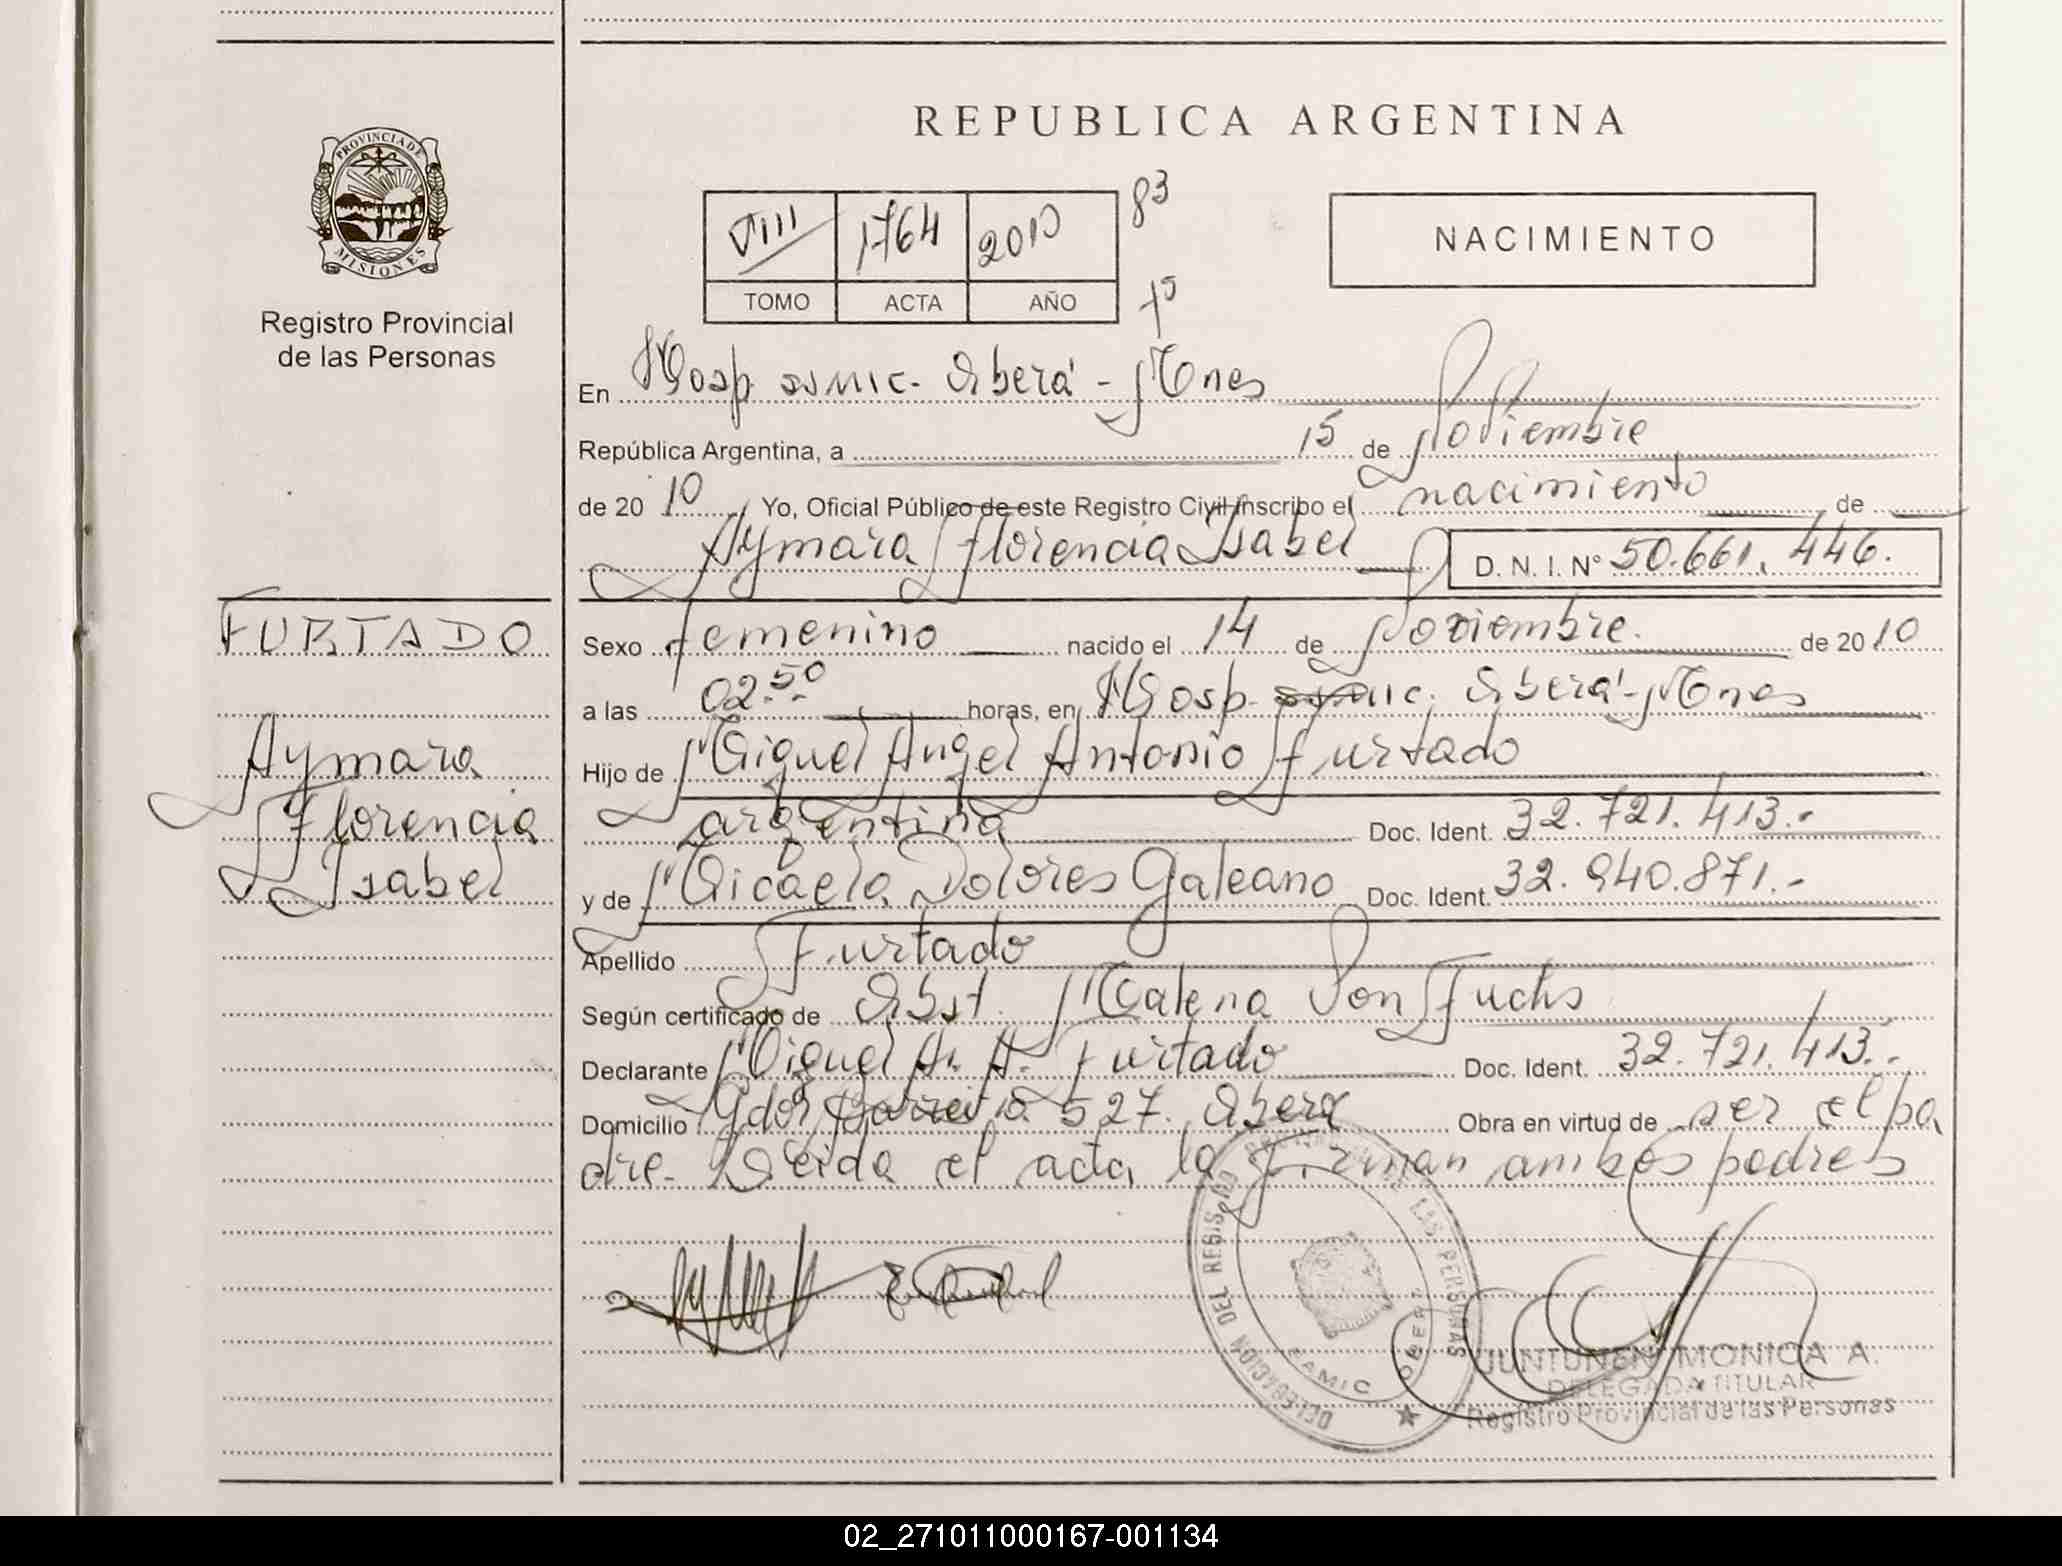 REPUBLICA ARGENTINA
PROVINCIA DE
MISIONES
Registro Provincial
de las Personas
VIII 1764 2010 83
TOMO ACTA AÑO
NACIMIENTO
En Hosp. SAMIC. Oberá - Mnes
República Argentina, a 15 de Noviembre
de 2010 Yo, Oficial Público de este Registro Civil inscribo el nacimiento de
Aymara Florencia Isabel D. N. I. Nº 50.661.446.
FURTADO
Aymara
Florencia
Isabel
Sexo femenino nacido el 14 de Noviembre. de 2010
a las 02.50 horas, en Hosp. SAMIC. Oberá - Mnes
Hijo de Miguel Angel Antonio Furtado
argentina Doc. Ident. 32.721.413.-
y de Micaela Dolores Galeano Doc. Ident. 32.940.871.-
Apellido Furtado
Según certificado de Obst. Malena Von Fuchs
Declarante Miguel A. A. Furtado Doc. Ident. 32.721.413.-
Domicilio Gdor Barreiro 527. Oberá Obra en virtud de ser el pa
dre. Leida el acta la firman ambos padres
DELEGACION DEL REGISTRO DE LAS PERSONAS
SAMIC OBERA
JUNTUNEN MONICA A.
DELEGADA TITULAR
Registro Provincial de las Personas
02_271011000167-001134